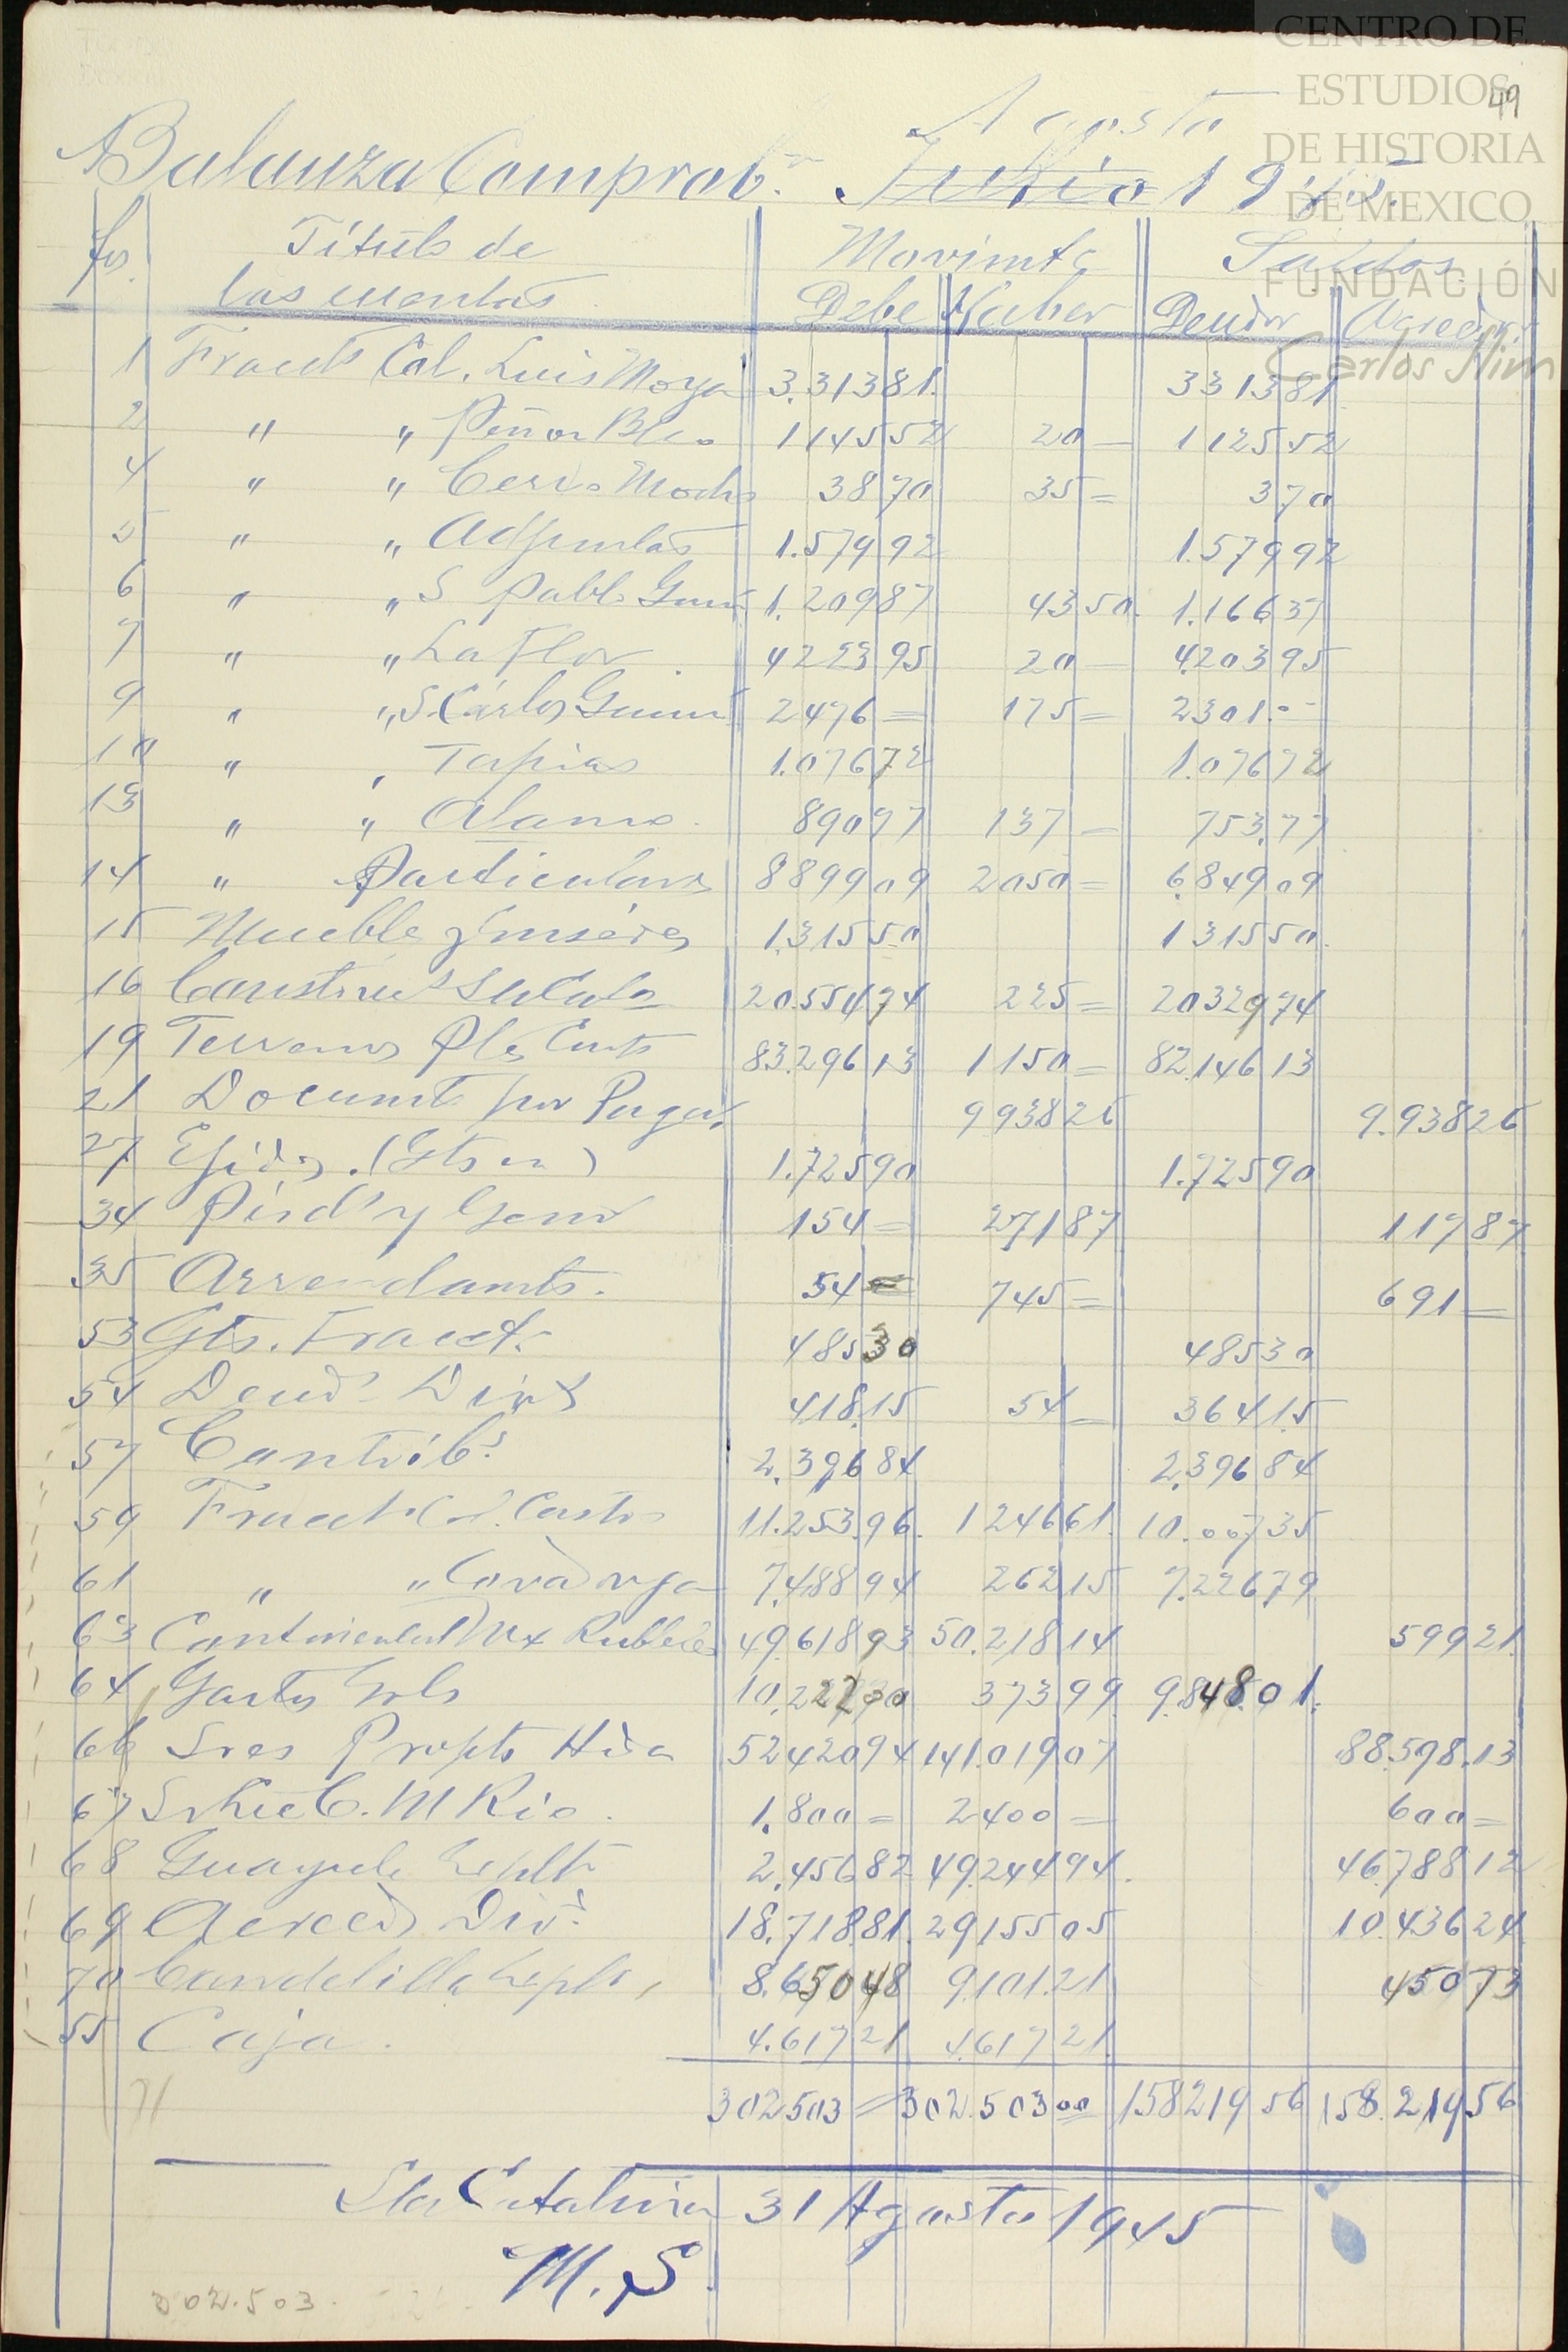 CENTRO DE
ESTUDIOS
DE HISTORIA
DE MEXICO
FUNDACIÓN
Carlos Slim
49
Agosto
Balanza Comprob. Julio 1945.
fos. Título de Movimto Saldos
las cuentas Debe Haber Deudor Acreedor
1 Fracto Col. Luis Moya 3.313 81 3313 81
2 " " Peñon Blco 1145 52 20 — 1125 52
4 " " Cerro Mocho 38 70 35 = 3 70
5 " " Adjuntas 1.579 92 1.579 92
6 " " S Pablo Gum 1.209 87 43 50 1.166 37
7 " " La Flor 4223 95 20 — 4203 95
9 " " S. Carlos Gumn 2476 = 175 = 2301 --
10 " " Tapias 1.076 72 1.076 72
13 " " Alamo 890 77 137 — 753.77
14 " Particulares 8899 09 2050 = 6.849 09
15 Mueble y Enseres 1315 50 1315 50
16 Construct 20.554 74 225 = 20329 74
19 Terrenos 83.296 13 1150 = 82.146 13
21 Documts por Pagar 9938 26 9.938 26
27 Ejidos. 1.725 90 1.725 90
34 Pird y Gans 154 = 271 87 117 87
35 Arrendamts. 54 = 745 = 691 =
53 Gts. Fracto 485 30 485 30
54 Deuds Divs 418.15 54 = 364 15
57 Contribs 2.396 84 2.396 84
59 Fracto Col. Castro 11.253.96 1246 61 10.007 35
61 " " 7.488 94 262 15 7.226 79
63 Continental Mex Rubber 49.618 93 50.218 14 599 21
64 Gastos Grls 10.222 00 373 99 9.848.01
66 Sres Propts Hda 52420 94 141.019 07 88.598.13
67 C. M Rio 1.800 = 2400 = 600 =
68 Guayule 2.456 82 49.244 94 46.788 12
69 Acreeds Divs 18.718 81 29155 05 10.436 24
70 Candelilla 8.650 48 9.101.21 450 73
55 Caja 4.617 21 4.617 21
71 302503 = 302.503 00 158219 56 158.219 56
Sta Catalina 31 Agosto 1945
M. S.
302.503